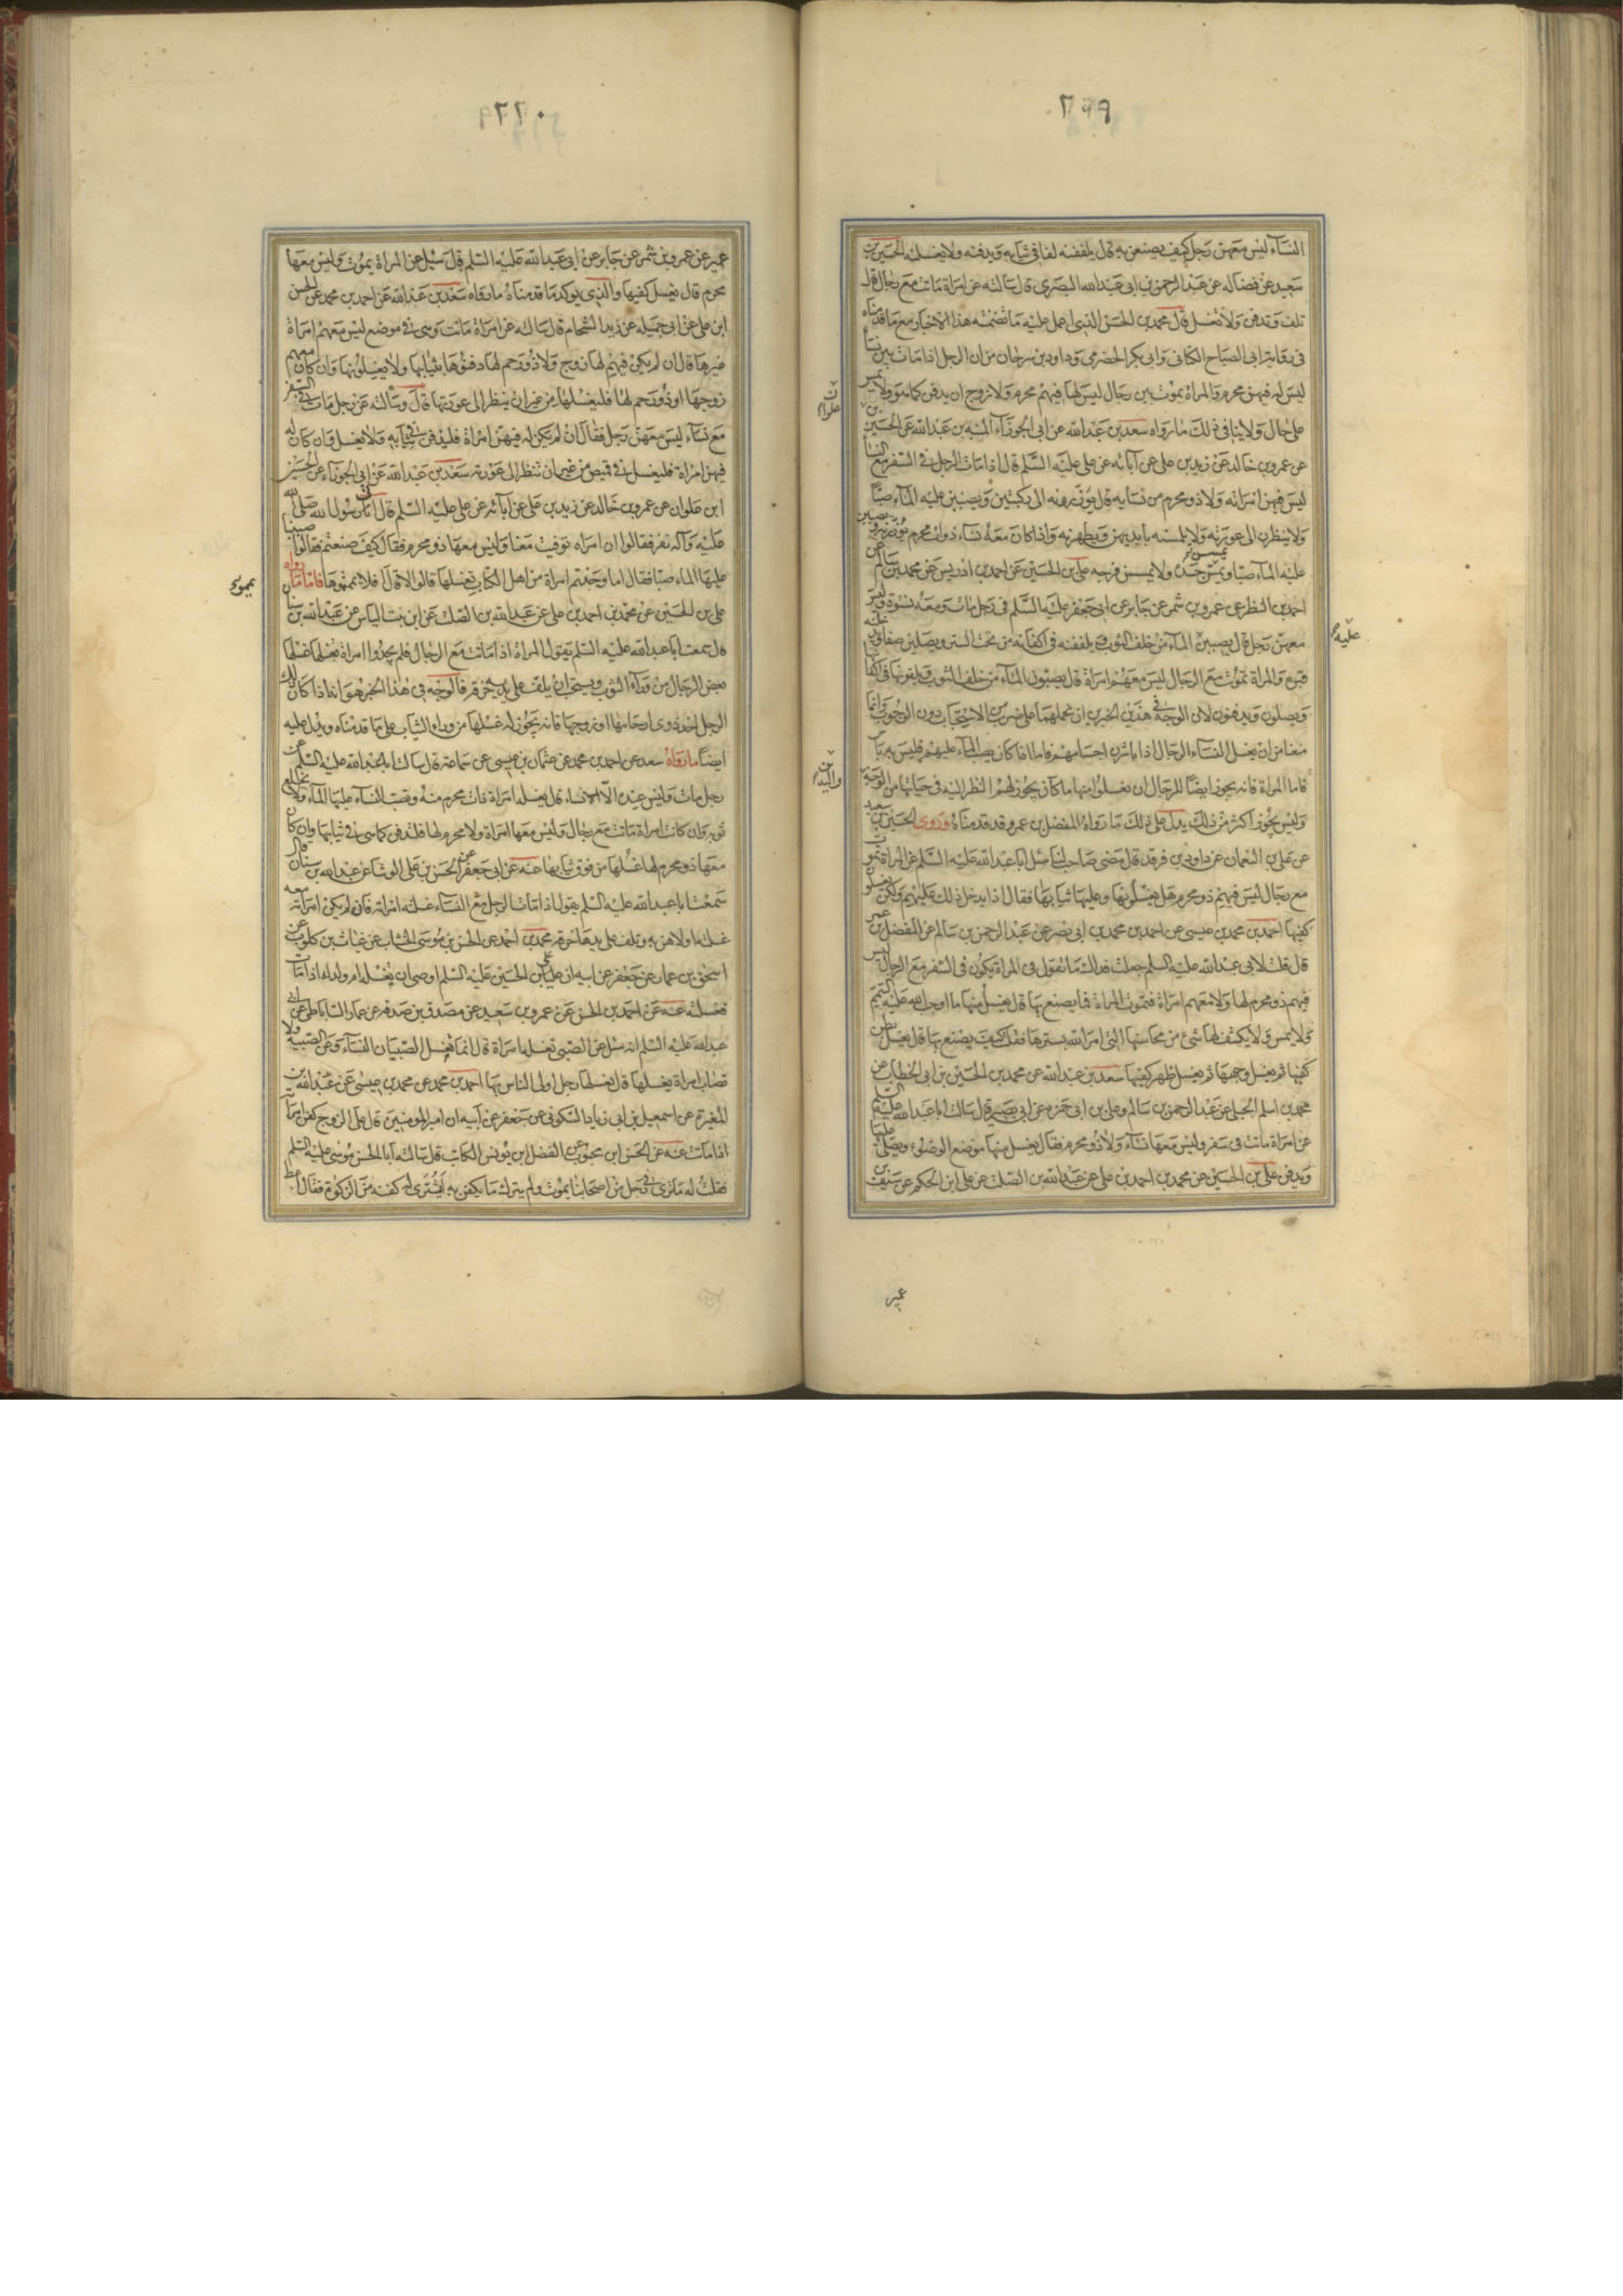 ٢٩٩
النسآء ليس معهن رجل كيف يصنعن به قال يلففنه لفا في ثيابه ويدفنه ولا يغسلنه الحسين بن
سعيد عن فضاله عن عبد الرحمن بن ابي عبد الله البصرى قال سالته عن امراة ماتت مع رجال قال
تلف وتدفن ولا تغسل قال محمد بن الحسن الذي اعمل عليه ما تضمنته هذا الاخبار مع ما قدمناه
في رواية ابي الصباح الكناني وابي بكر الحضرمى وداود بن سرحان من ان الرجل اذا مات بين نسآ
ليس له فيهن محرم والمراة تموت بين رجال ليس لها فيهم محرم ولا زوج ان يدفن كما هو ولا
على حال ولا ينافى ذلك ما رواه سعد بن عبد الله عن ابي الجوزآء المنبه بن عبد الله عن الحسين بن
علوان
عن عمرو بن خالد عن زيد بن على عن آبائه عن على عليه السلم قال اذا مات الرجل في السفر مع النسآ
ليس فيهن امراته ولا ذو محرم من نسايه قال يوزرونه الى ركبتين ويصببن عليه المآء صبّا
ولا ينظرن الى عورته ولا يلمسنه بأيديهن ويطهرنه واذا كان معه نساء ذوات محرم يوزرنه ويصببن
عليه المآء صبا ويمسسن جسده ولا يمسسن فرجه على بن الحسين عن احمد بن ادريس عن محمد بن سالم عن
احمد بن النظر عن عمرو بن شمر عن جابر عن ابي جعفر عليه السلم في رجل مات ومعه نسوة وليس
معهن رجل قال يصببن المآء من خلف الثوب ويلففنه في اكفانه من تحت الستر ويصلين صفا ويدخلنه
عليه
قبره والمراة تموت مع الرجال ليس معهم امراة قال يصبون المآء من خلف الثوب ويلفونها في اكفانها
ويصلون ويدفنون لان الوجه في هذين الخبرين ان نحملهما على ضرب من الاستحباب دون الوجوب وانما
منعنا من ان يغسل النساء الرجال اذا باشرن اجسامهم فاما اذا كان بصب المآء عليهم فليس به باس
فاما المراة فانه يجوز ايضا للرجال ان يغسلوا منها ما كان يجوز لهم النظر اليه في حياتها من الوجه
واليدين
وليس يجوز اكثر من ذلك يدل على ذلك ما رواه المفضل بن عمر وقد قدمناه وروى الحسين بن سعيد
عن على بن النعمان عن داود بن فرقد قال مضى صاحب لنا سئل ابا عبد الله عليه السلم عن المراة تموت
مع رجال ليس فيهم ذو محرم هل يغسلونها وعليها ثيابها فقال اذا يدخل ذلك عليهم ولكن يغسلون
كفيها احمد بن محمد بن عيسى عن احمد بن محمد بن ابي نصر عن عبد الرحمن بن سالم عن المفضل بن عمر
قال قلت لابي عبد الله عليه السلم جعلت فداك ما تقول في المراة يكون في السفر مع الرجال ليس
فيهم ذو محرم لها ولا معهم امراة فتموت المراة فما يصنع بها قال يغسل منها ما اوجب الله عليه التيمم
ولا يمس ولا يكشف لها شئ من محاسنها التي امر الله بسترها فقلت كيف يصنع بها قال يغسل بطن
كفيها ثم يغسل وجهها ثم يغسل ظهر كفيها سعد بن عبد الله عن محمد بن الحسين بن ابي الخطاب عن
محمد بن اسلم الجبلى عن عبد الرحمن بن سالم وعلى بن ابي حمزه عن ابي بصير قال سالت ابا عبد الله عليه السلم
عن امراة ماتت في سفر وليس معها نسآء ولا ذو محرم فقال يغسل منها موضع الوضوء ويصلى عليها
ويدفن على بن الحسين عن محمد بن احمد بن على عن عبد الله بن الصلت عن على بن الحكم عن سيف بن
عمير
٢٢٠
عمير عن عمرو بن شمر عن جابر عن ابي عبد الله عليه السلم قال سئل عن المراة يموت وليس معها
محرم قال يغسل كفيها والذي يوكد ما قدمناه ما رواه سعد بن عبد الله عن احمد بن محمد عن الحسن
ابن على عن ابي جميله عن زيد الشحام قال سالته عن امراة ماتت وهى في موضع ليس معهم امراة
غيرها قال ان لم يكن فيهم لها زوج ولا ذو رحم لها دفنوها بثيابها ولا يغسلونها وان كان معهم
زوجها او ذو رحم لها فليغسلها من غير ان ينظر الى عورتها قال وسالته عن رجل مات في السفر
مع نسآء ليس معهن رجل فقال ان لم يكن له فيهن امراة فليدفن في ثيابه ولا يغسل وان كان له
فيهن امراة فليغسل في قميص من غير ان تنظر الى عورته سعد بن عبد الله عن ابي الجوزاء عن الحسين
ابن علوان عن عمرو بن خالد عن زيد بن على عن آبائه عن على عليه السلم قال اتى رسول الله صلى الله
عليه وآله نفر فقالوا ان امراه توفيت معنا وليس معها ذو محرم فقال كيف صنعتم فقالوا صببنا
عليها الماء صبا فقال اما وجدتم امراة من اهل الكتاب تغسلها قالوا لا قال افلا يمموها فاما ما رواه
يمموء
على بن الحسين عن محمد بن احمد بن على عن عبد الله بن الصلت عن ابن بنت الياس عن عبد الله بن سنان
قال سمعت ابا عبد الله عليه السلم يقول المراة اذا ماتت مع الرجال فلم يجدوا امراة تغسلها غسلها
بعض الرجال من ورآء الثوب ويستحب ان يلف على يديه خرقه فالوجه في هذا الخبر هو انه اذا كان ذلك
الرجل احد ذوى ارحامها او زوجها فانه يجوز له غسلها من وراء الثياب على ما قدمناه ويدل عليه
ايضا ما رواه سعد عن احمد بن محمد عن عثمان بن عيسى عن سماعة قال سالت ابا عبد الله عليه السلم عن
رجل مات وليس عنده الا نساء قال يغسله امراة ذات محرم منه وتصب النساء عليها المآء ولا تخلع
ثوبه وان كانت امراة ماتت مع رجال وليس معها امراة ولا محرم لها فلتدفن كما هى في ثيابها وان كان
معها ذو محرم لها غسلها من فوق ثيابها عنه عن ابي جعفر عن الحسن بن على الوشا عن عبد الله بن سنان قال
سمعت ابا عبد الله عليه السلم يقول اذا مات الرجل مع النساء غسلته امراته فان لم يكن امراته معه
غسلته اولاهن به وتلف على يدها خرقه محمد بن احمد عن الحسن بن موسى الخشاب عن غياث بن كلوب عن
اسحق بن عمار عن جعفر عن ابيه ان على بن الحسين عليه السلم اوصى ان تغسله ام ولد له اذا مات
فغسلته عنه عن احمد بن الحسن عن عمرو بن سعيد عن مصدق بن صدقه عن عمار الساباطى عن ابي
عبد الله عليه السلم انه سئل عن الصبى تغسله امراة قال انما يغسل الصبيان النسآء وعن الصبية ولا
تصاب امراة يغسلها قال يغسلها رجل اولى الناس بها احمد بن محمد عن محمد بن عيسى عن عبد الله بن
المغيرة عن اسمعيل بن ابي زياد السكونى عن جعفر عن ابيه ان امير المومنين قال على الزوج كفن امراته
اذا ماتت عنه عن الحسن ابن محبوب عن الفضل ابن يونس الكاتب قال سالت ابا الحسن موسى عليه السلم
فقلت له ما ترى في رجل من اصحابنا يموت ولم يترك ما يكفن به اشترى له كفنه من الزكوة فقال اعط